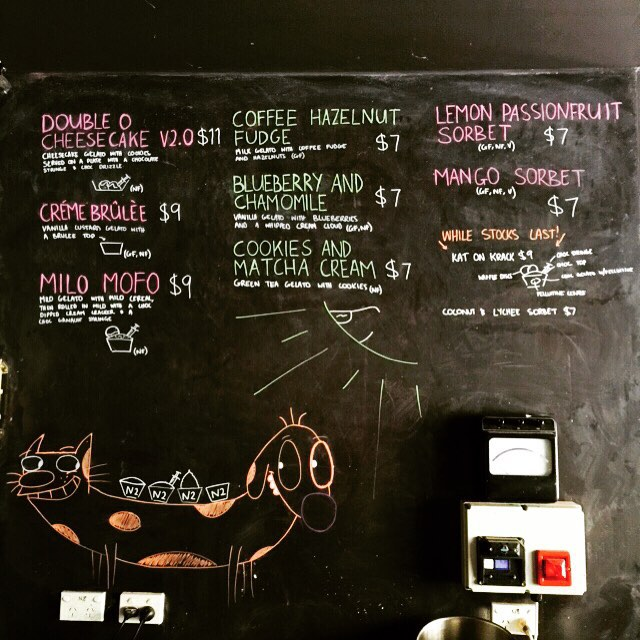 DOUBLE O
CHEESECAKE V2.0 $11
CHEESECAKE GELATO WITH COOKIES
SERVED ON A PLATE WITH A CHOCOLATE
SYRINGE & CHOC DRIZZLE
(NF)
CRÉME BRÛLÈE $9
VANILLA CUSTARD GELATO WITH
A BRULEE TOP
(GF, NF)
MILO MOFO $9
MILO GELATO WITH MILO CEREAL,
THEN ROLLED IN MILO WITH A CHOC
DIPPED CREAM CRACKER & A
CHOC GANACHE SYRINGE
(NF)
COFFEE HAZELNUT
FUDGE $7
MILK GELATO WITH COFFEE FUDGE
AND HAZELNUTS (GF)
BLUEBERRY AND
CHAMOMILE $7
VANILLA GELATO WITH BLUEBERRIES
AND A WHIPPED CREAM CLOUD (GF, NF)
COOKIES AND
MATCHA CREAM $7
GREEN TEA GELATO WITH COOKIES (NF)
LEMON PASSIONFRUIT
SORBET $7
(GF, NF, V)
MANGO SORBET
(GF, NF, V)
$7
WHILE STOCKS LAST!
KAT ON KRACK $9
COCONUT & LYCHEE SORBET $7
N2 N2 N2 N2